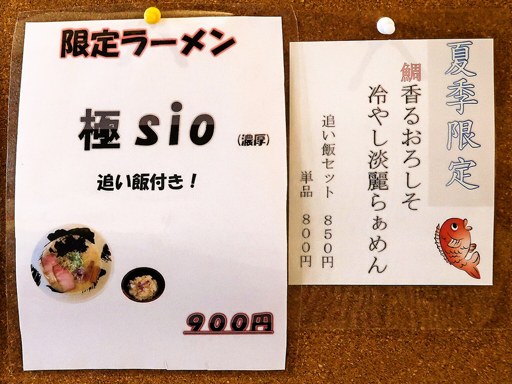 限定ラーメン
極sio (濃厚)
追い飯付き！
９００円
夏季限定
鯛香るおろしそ
冷やし淡麗らぁめん
追い飯セット　８５０円
単品　８００円